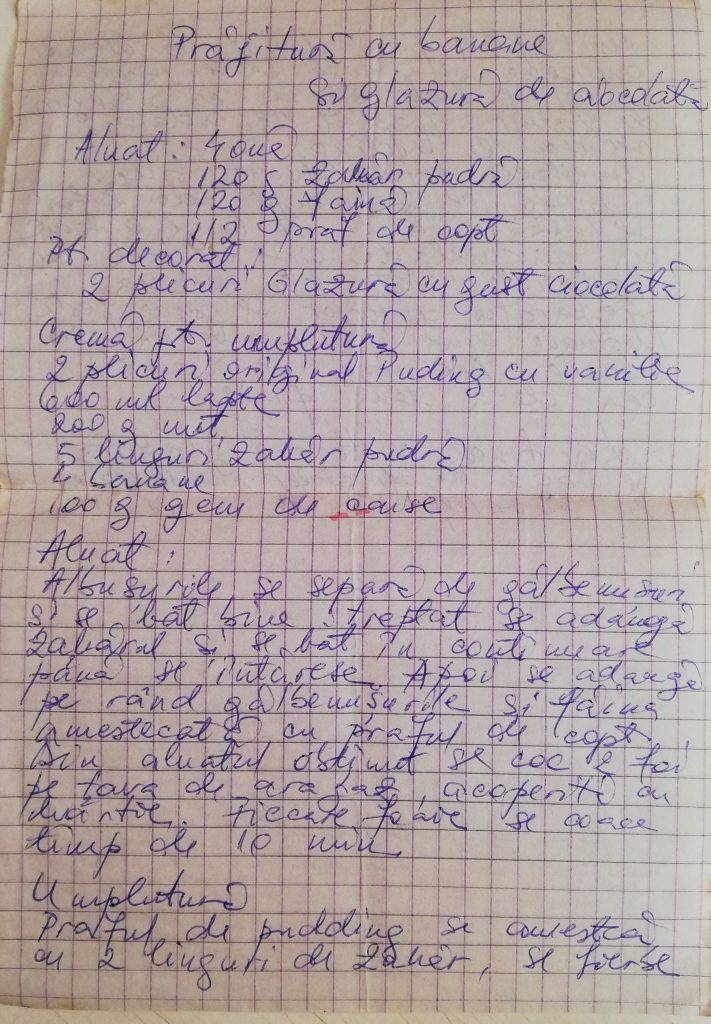 Prăjitură cu banane
și glazură de ciocolată
Aluat: 4 ouă
120 g zahăr pudră
120 g făină
1/2 praf de copt
Pt. decorat:
2 plicuri Glazură cu gust ciocolată
Cremă pt. umplutură
2 plicuri original Puding cu vanilie
600 ml lapte
200 g unt,
5 linguri zahăr pudră
4 banane
100 g gem de caise
Aluat:
Albușurile se separă de gălbenușuri
și se bat bine. Treptat se adaugă
zahărul și se bat în continuare
până se întăresc. Apoi se adaugă
pe rând gălbenușurile și făina
amestecată cu praful de copt.
Din aluatul obținut se coc 2 foi
pe tava de aragaz, acoperită cu
hârtie. Fiecare foaie se coace
timp de 10 min.
Umplutură
Praful de pudding se amestecă
cu 2 linguri de zahăr, se fierbe